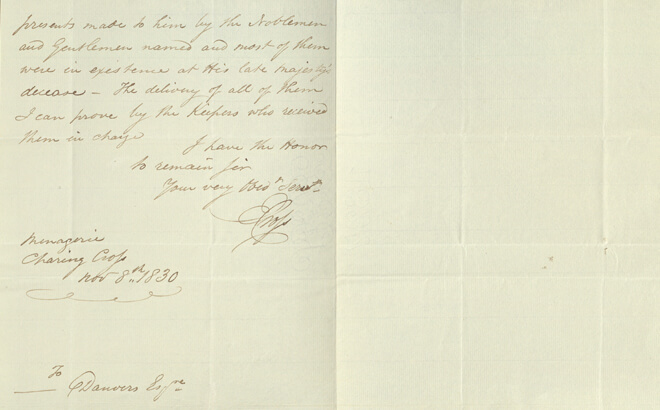 presents made to him by the Noblemen
and Gentlemen named and most of them
were in existence at His late majesty's
decease – The delivery of all of them
I can prove by the Keepers who received
them in charge
I have the Honor
to remain Sir
Your very Obdt Servt
E Cross
Menagerie
Charing Cross
Nov 8th 1830
To
C Danvers Esqre